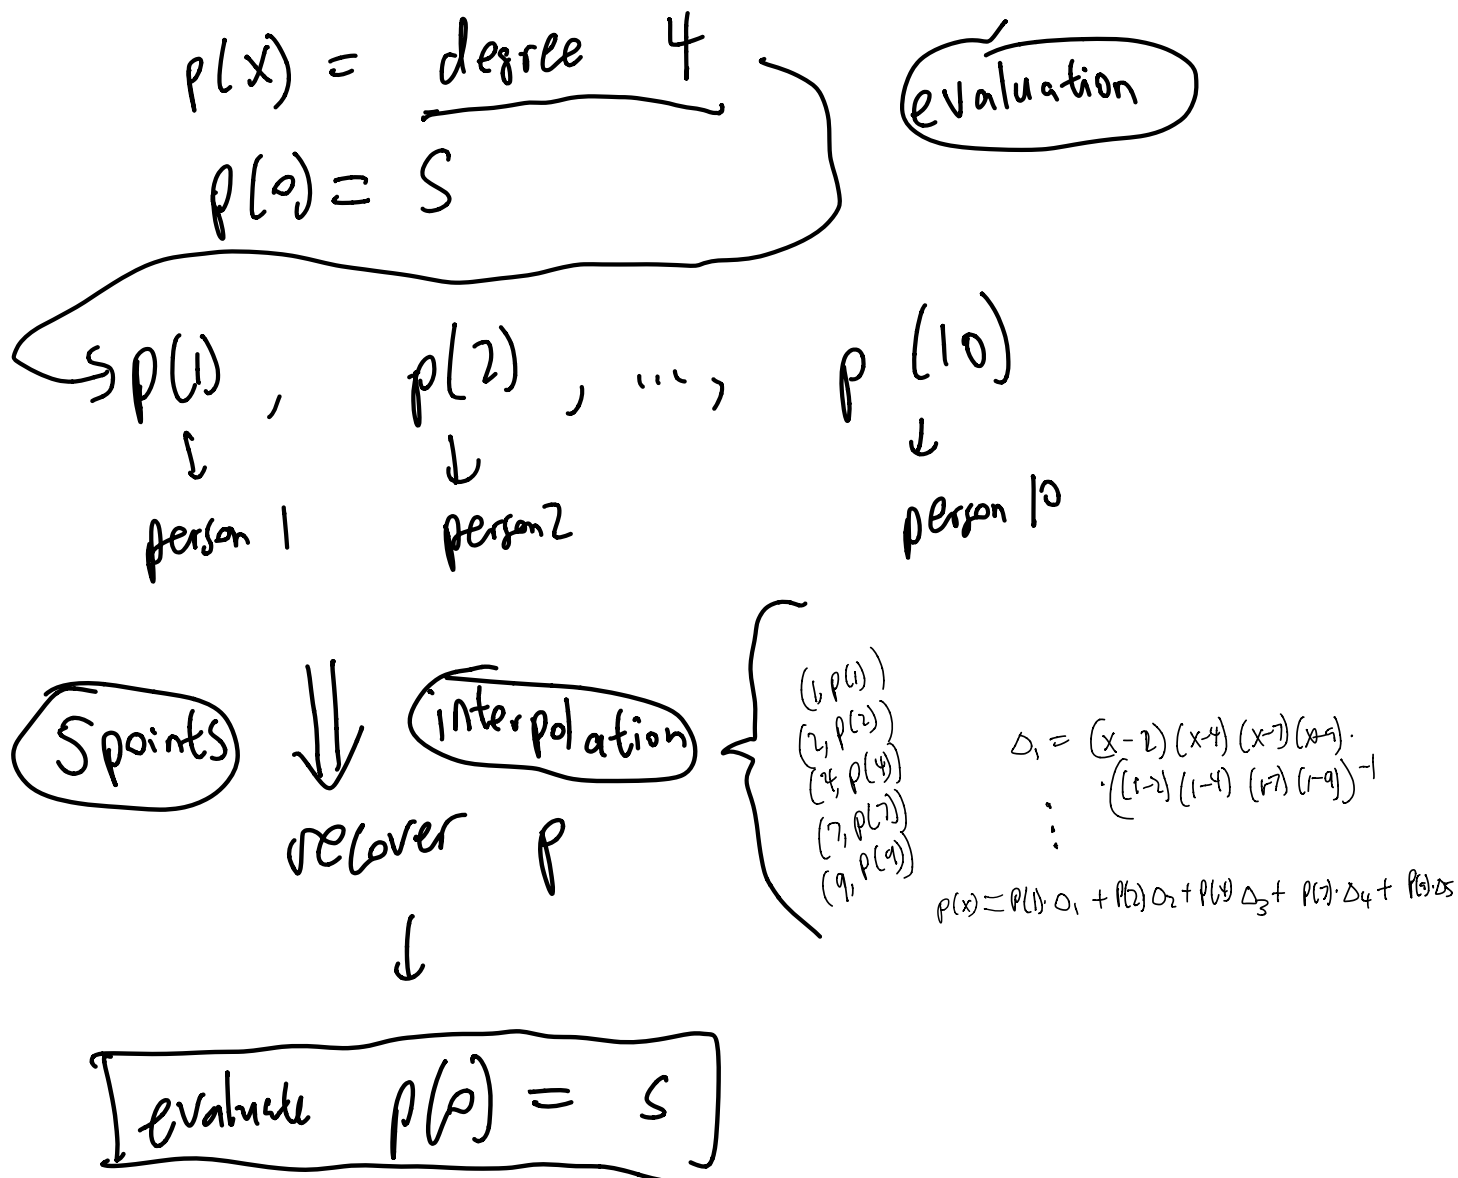 p(x) = degree 4
evaluation
p(0) = S
p(1), p(2), ..., p(10)
↓ ↓ ↓
person 1 person 2 person 10
5 points ⇓ interpolation
recover p
(1, p(1))
(2, p(2))
(4, p(4))
(7, p(7))
(9, p(9))
Δ₁ = (x-2)(x-4)(x-7)(x-9).
.((1-2)(1-4)(1-7)(1-9))⁻¹
⋮
p(x) = p(1)·Δ₁ + p(2)Δ₂ + p(4)Δ₃ + p(7)·Δ₄ + p(9)·Δ5
↓
evaluate p(0) = s